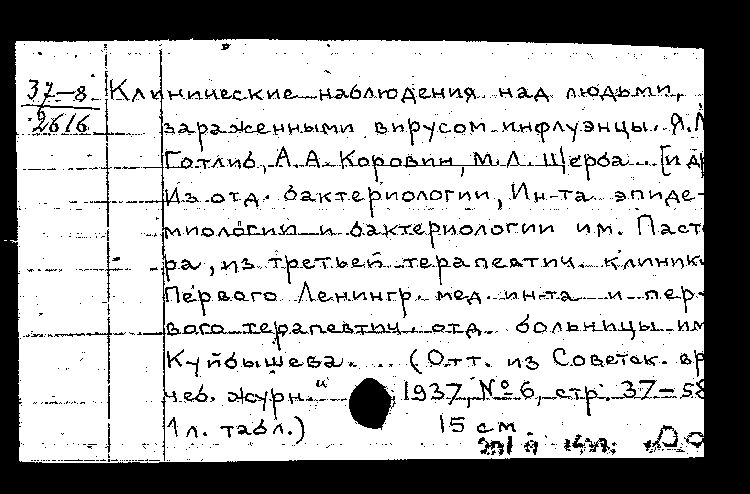 37-8
2616
Клинические наблюдения над людьми,
зараженными вирусом инфлуэнцы. Я.Л
Готлиб, А.А. Коровин, М.Л. Щерба.. [и др
Из отд. бактериологии, Ин-та эпиде-
миологии и бактериологии им. Паст
ра, из третьей терапевтич. клиник
Первого Ленингр. мед. ин-та и пер-
вого терапевтич. отд. больницы им
Куйбышева... (Отт. из Советск. вр
чеб. журн." 1937, № 6, стр. 37-58
1 л. табл.) 15 см